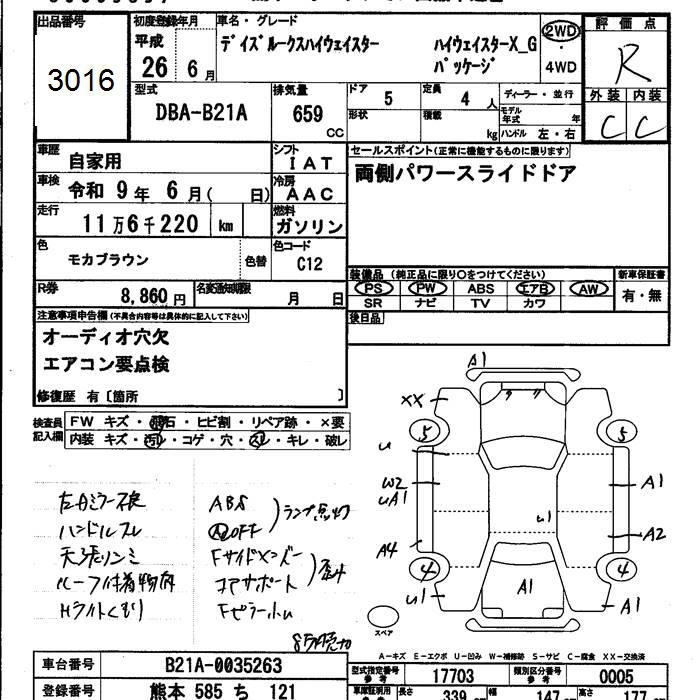 出品番号 初度登録年月 車名・グレード 評価点
3016
平成 26 6月
デイズルークスハイウェイスター ハイウェイスターX_G パッケージ
2WD
・
4WD
R
型式 排気量 ドア 定員 ディーラー・並行 外装 内装
DBA-B21A 659 CC 5 4 人
形状 積載 kg モデル年式 年
ハンドル 左・右
C C
車歴 自家用 シフト IAT セールスポイント(正常に機能するものに限ります)
両側パワースライドドア
車検 令和 9年 6月( 日) 冷房 AAC
走行 11万6千220 km 燃料 ガソリン
色 モカブラウン 色替 色コード C12
装備品 (純正品に限り○をつけてください) 新車保証書
PS PW ABS エアB AW 有・無
SR ナビ TV カワ
R券 8,860円 名変通知期限 月 日
後日品
注意事項申告欄(不具合内容等は具体的に記入して下さい)
オーディオ穴欠
エアコン要点検
修復歴 有〔箇所 〕
検査員記入欄
FW キズ・飛石・ヒビ割・リペア跡・×要
内装 キズ・汚レ・コゲ・穴・スレ・キレ・破レ
ハンドルスレ
ABS
ランプ点灯
Fサイドメンバー
コアサポート
Hライトくもり
A1
XX
5 5
u
W2
uA1
A1
u1
A4
A2
4 4
A1
u1
A1
スペア
A−キズ E−エクボ U−凹み W−補修跡 S−サビ C−腐食 XX−交換済
車台番号 B21A-0035263
型式指定番号 参考 17703 類別区分番号 参考 0005
登録番号 熊本 585 ち 121
車庫証明用 参考 長さ 339 cm 幅 147 cm 高さ 177 cm